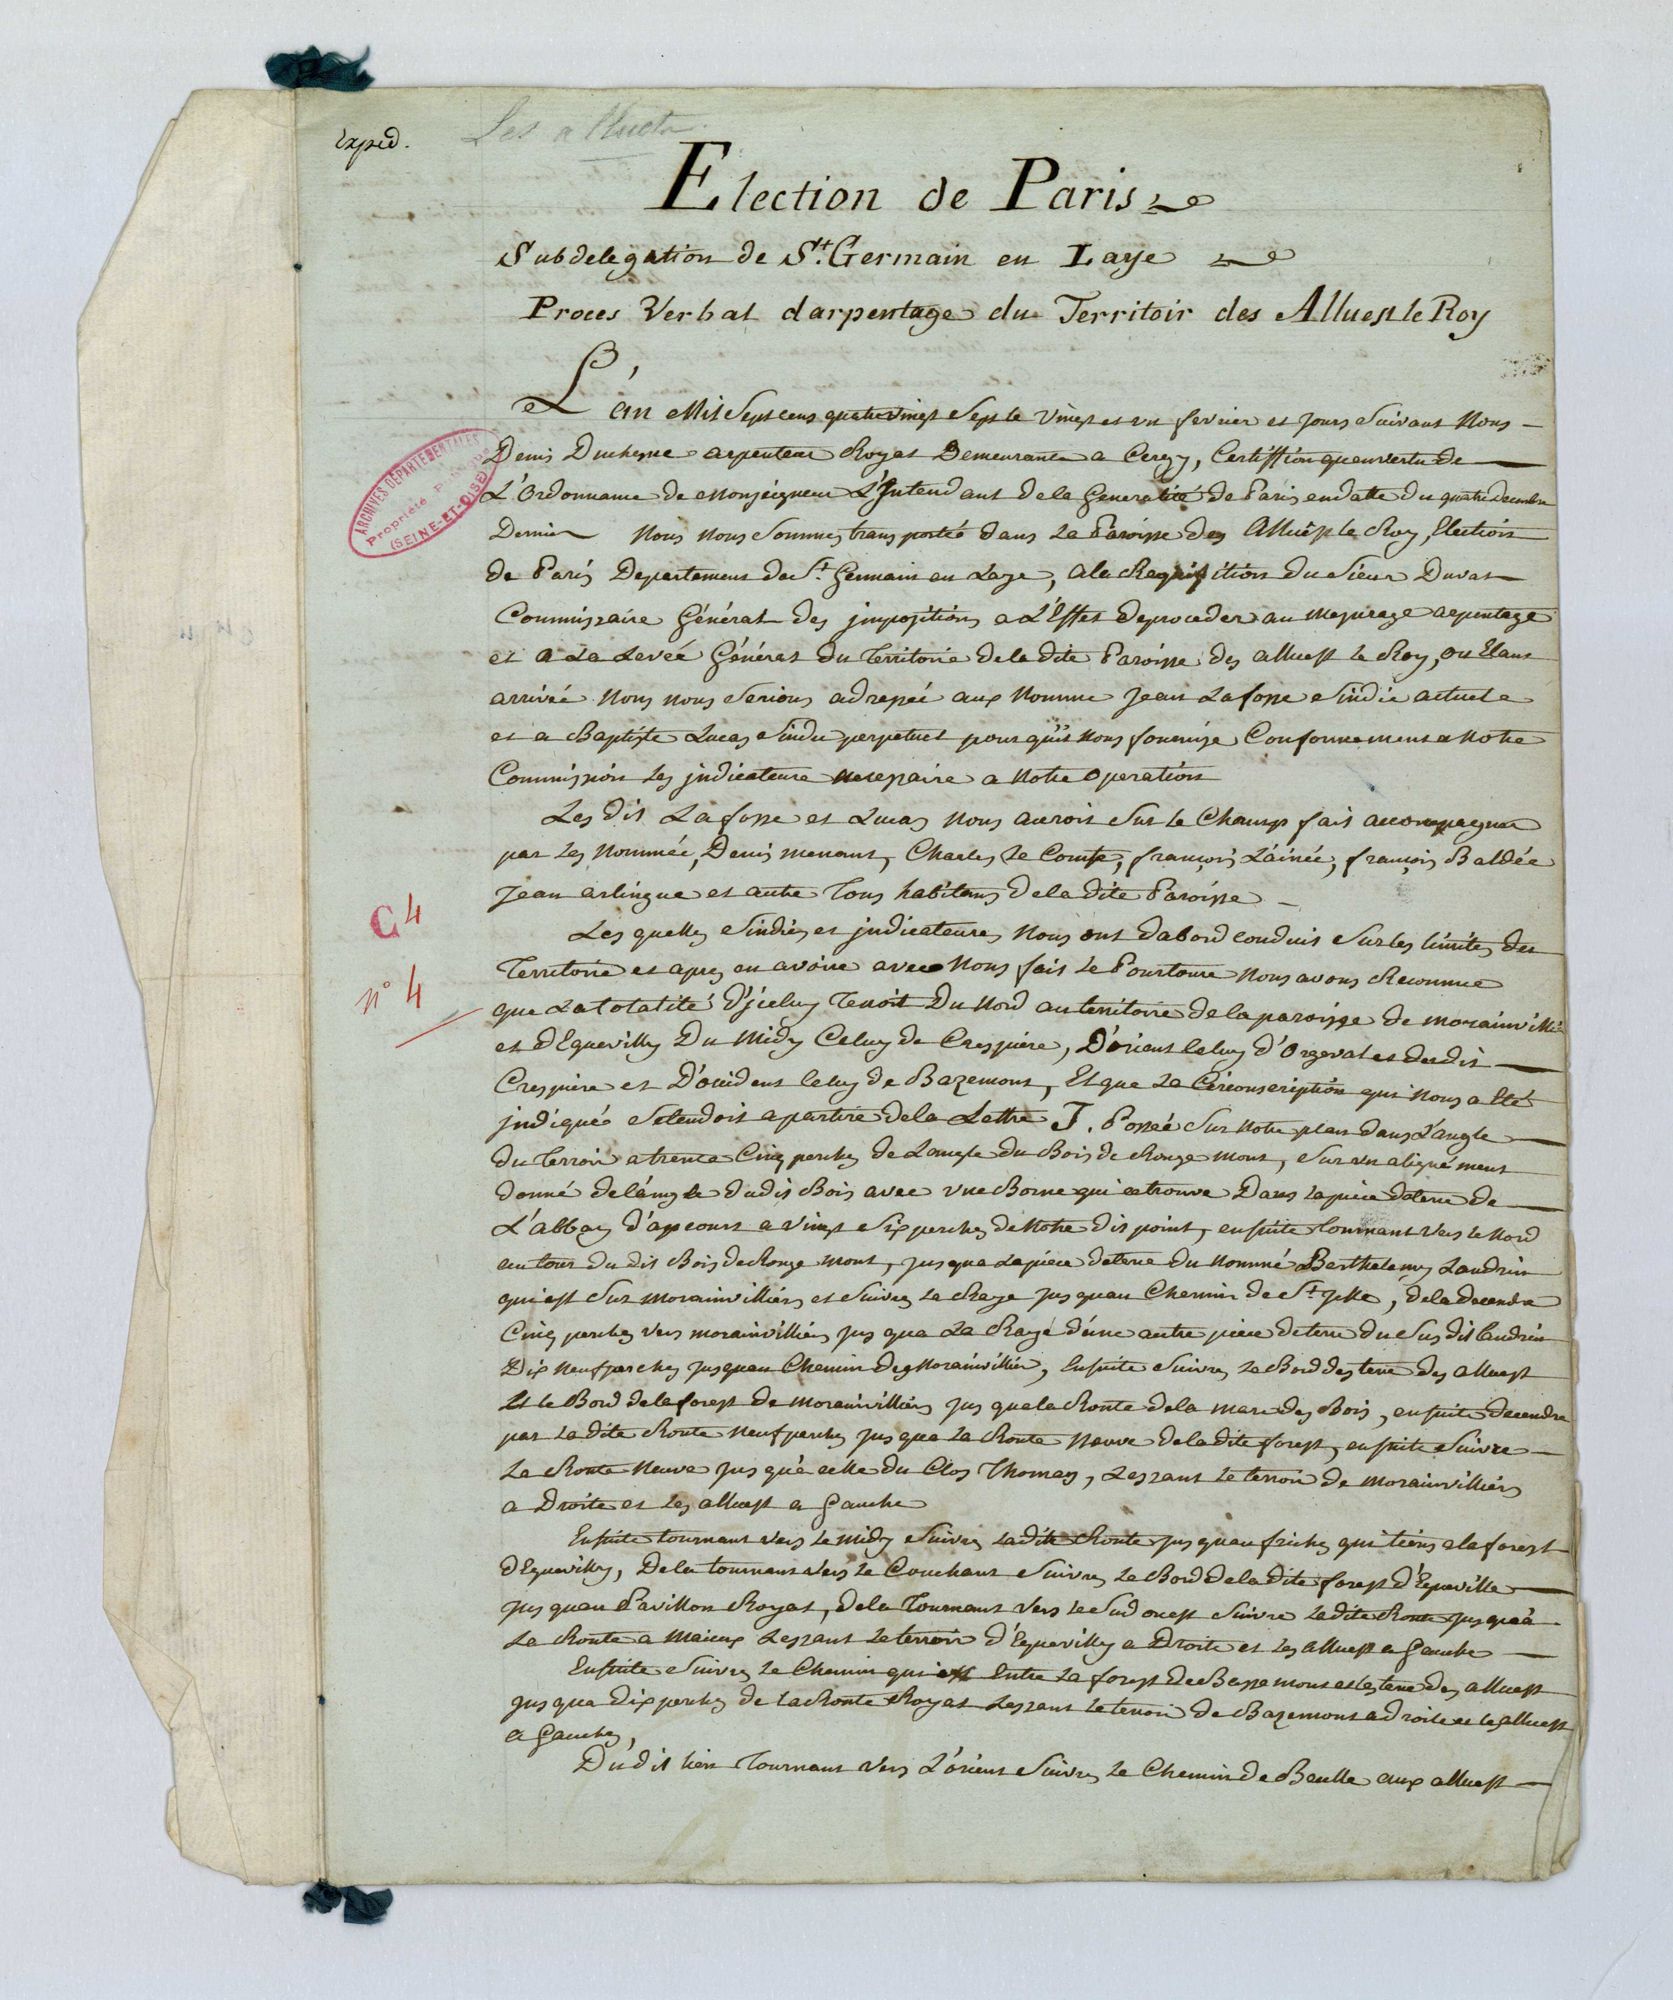 Exped.
Les alluets
Election de Paris
Subdelegation de St. Germain en Laye
Proces Verbal darpentage du Territoir des Alluest le Roy
L'an Mil Sept cens quatrevingt Sept le Vingt et un fevrier et jours Suivant Nous
Denis Duchesne arpenteur Royal Demeurante a Cergy, Certiffion quenvertu de
L'Ordonnance de Monseigneur L'Intendant dela Generalité de Paris en datte du quatre decembre
Dernier Nous nous Sommes transporté dans La Paroisse des Alluest le Roy, Election
de Paris Departement de St. Germain en Laye, a la Requisition du Sieur Duval
Commissaire Général des jmpositions a L'Effet deproceder au Mesurage arpentage
et a La Levée Général du Territoire de la dite Paroisse des alluest le Roy, ou Etant
arrivée Nous nous Serions adressée aux Nomme Jean Lafosse Sindic actuele
et a Baptiste Lucas Sindic perpetuel pour qu'il Nous fournisse Conformement a Notre
Commission les jndicateure nesessaire a Notre Operation
Les dit Lafosse et Lucas Nous auroit Sur le Champ fait accompagner
par les Nommée, Denis menant, Charles Le Comte, françois L'ainée, françois Baldée
Jean arlingue et autre Tous habitans dela dite Paroisse
Les quelles Sindics et jndicateures Nous ont dabord conduit Sur les limites des
Territoire et apres en avoire avec Nous fait le Pourtoure Nous avons Reconnue
que La totalité D'jceluy Tenoit Du Nord au territoire de la paroisse de morainvilliers
et d'Equevilly Du Midy Celuy de Crespiere, D'orient Celuy d'Orgeval et dudit
Crespiere et D'occident Celuy de Bazemont, Et que La Circonscription qui Nous a Eté
jndiqué Setendoit a partire dela Lettre J. Possée Sur Notre plan dans L'angle
du Terroir a trente Cinq perches de Langle du Bois de Rouge mont, Sur un alignement
donné de l'angle dudit Bois avec une Borne qui se trouve Dans la piece de terre de
L'abbay d'apcourt a vingt Six perches de Notre dit point, ensuite tournant vers le Nord
autour du dit Bois de Rouge mont, jusqua La piece de terre du Nommé Berthelemy Landrin
qui est Sur morainvilliers et Suivre La Raye jusquau Chemin de St. , dela decendre
Cinq perches vers morainvilliers jusqua La Raye d'une autre piece de terre du Sus dit Landrin
Dix Neuf perches jusquau Chemin des Morainvillier, Ensuite Suivre Le Bord des terre des alluest
Et le Bord de la forest de Morainvilliers jus quala Route dela mare des Bois, ensuite decendre
par la dite Route Neuf perches jus qua La Route Neuve de la dite forest, ensuite Suivre
La Route Neuve jus qu'a celle du Clos Thomas, Lessant le terroir de Morainvilliers
a Droite et les alluest a Gauche
Ensuite tournant vers Le midy Suivre La dite Route jus quau friches qui tiens a la forest
d'Equevilly, De la tournant vers Le Couchant Suivre Le Bord de la dite forest d'Equeville
jus quau Pavillon Royal, dela Tournant vers Le Sud ouest Suivre La dite Route jusqu'a
La Route a Maieux Lessant Le terroir d'Equevilly a Droite et les alluest a Gauche
Ensuite Suivre Le Chemin qui est Entre La forest de Bassemont et les terre des alluest
jus qua Dix perches de La Route Royal Lessant Le terroir de Bazemont a droite et les alluest
a Gauche,
Du dit lieu Tournant vers L'orient Suivre Le Chemin de Beulle aux alluest
ARCHIVES DÉPARTEMENTALES
Propriété Publique
(SEINE-ET-OISE)
C 4
n° 4